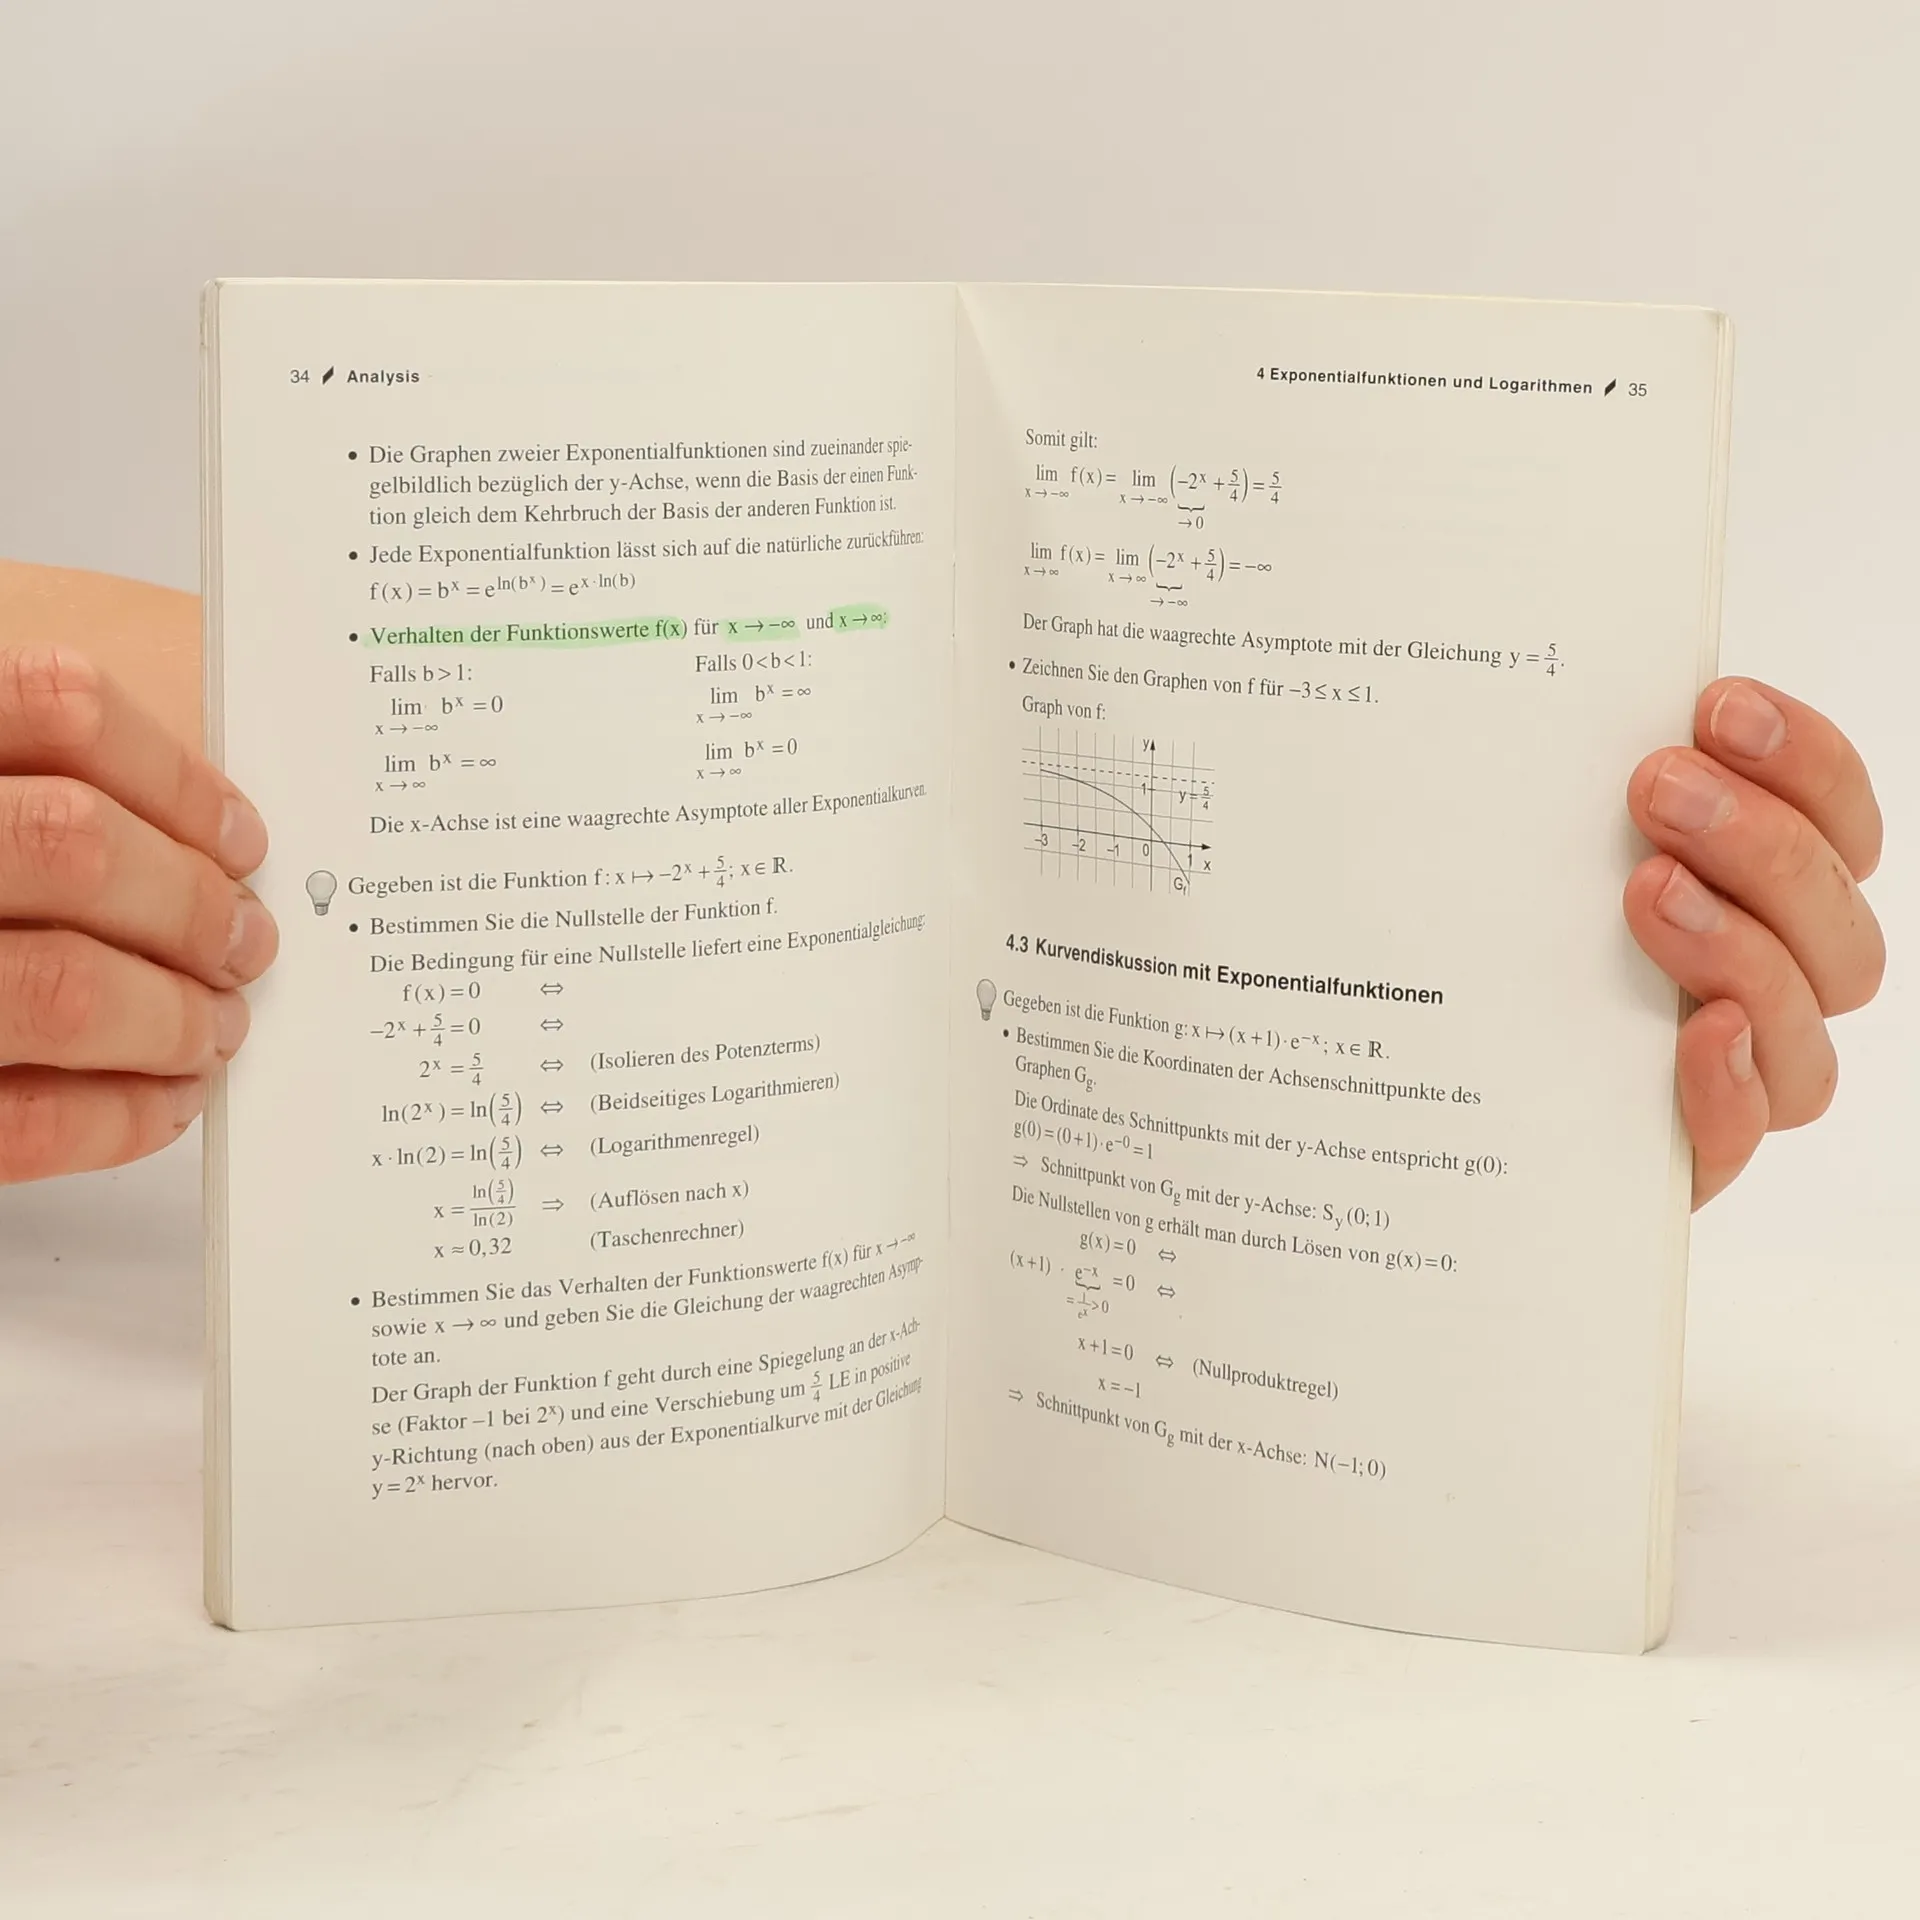 34 Analysis
• Die Graphen zweier Exponentialfunktionen sind zueinander spie-
gelbildlich bezüglich der y-Achse, wenn die Basis der einen Funk-
tion gleich dem Kehrbruch der Basis der anderen Funktion ist.
• Jede Exponentialfunktion lässt sich auf die natürliche zurückführen:
f(x) = bˣ = e^(ln(bˣ)) = e^(x·ln(b))
• Verhalten der Funktionswerte f(x) für x → −∞ und x → ∞:
Falls b > 1: Falls 0 < b < 1:
lim bˣ = 0 lim bˣ = ∞
x → −∞ x → −∞
lim bˣ = ∞ lim bˣ = 0
x → ∞ x → ∞
Die x-Achse ist eine waagrechte Asymptote aller Exponentialkurven.
Gegeben ist die Funktion f: x ↦ −2ˣ + 5/4; x ∈ ℝ.
• Bestimmen Sie die Nullstelle der Funktion f.
Die Bedingung für eine Nullstelle liefert eine Exponentialgleichung:
f(x) = 0 ⇔
−2ˣ + 5/4 = 0 ⇔
2ˣ = 5/4 ⇔ (Isolieren des Potenzterms)
ln(2ˣ) = ln(5/4) ⇔ (Beidseitiges Logarithmieren)
x · ln(2) = ln(5/4) ⇔ (Logarithmenregel)
x = ln(5/4)/ln(2) ⇒ (Auflösen nach x)
x ≈ 0,32 (Taschenrechner)
• Bestimmen Sie das Verhalten der Funktionswerte f(x) für x → −∞
sowie x → ∞ und geben Sie die Gleichung der waagrechten Asymp-
tote an.
Der Graph der Funktion f geht durch eine Spiegelung an der x-Ach-
se (Faktor −1 bei 2ˣ) und eine Verschiebung um 5/4 LE in positive
y-Richtung (nach oben) aus der Exponentialkurve mit der Gleichung
y = 2ˣ hervor.
4 Exponentialfunktionen und Logarithmen 35
Somit gilt:
lim f(x) = lim (−2ˣ + 5/4) = 5/4
x → −∞ x → −∞
→ 0
lim f(x) = lim (−2ˣ + 5/4) = −∞
x → ∞ x → ∞
→ −∞
Der Graph hat die waagrechte Asymptote mit der Gleichung y = 5/4.
• Zeichnen Sie den Graphen von f für −3 ≤ x ≤ 1.
Graph von f:
y
1 y = 5/4
−3 −2 −1 0 1 x
G_f
4.3 Kurvendiskussion mit Exponentialfunktionen
Gegeben ist die Funktion g: x ↦ (x + 1) · e⁻ˣ; x ∈ ℝ.
• Bestimmen Sie die Koordinaten der Achsenschnittpunkte des
Graphen G_g.
Die Ordinate des Schnittpunkts mit der y-Achse entspricht g(0):
g(0) = (0 + 1) · e⁻⁰ = 1
⇒ Schnittpunkt von G_g mit der y-Achse: S_y (0; 1)
Die Nullstellen von g erhält man durch Lösen von g(x) = 0:
g(x) = 0 ⇔
(x + 1) · e⁻ˣ = 0 ⇔
= 1/eˣ > 0
x + 1 = 0 ⇔ (Nullproduktregel)
x = −1
⇒ Schnittpunkt von G_g mit der x-Achse: N(−1; 0)